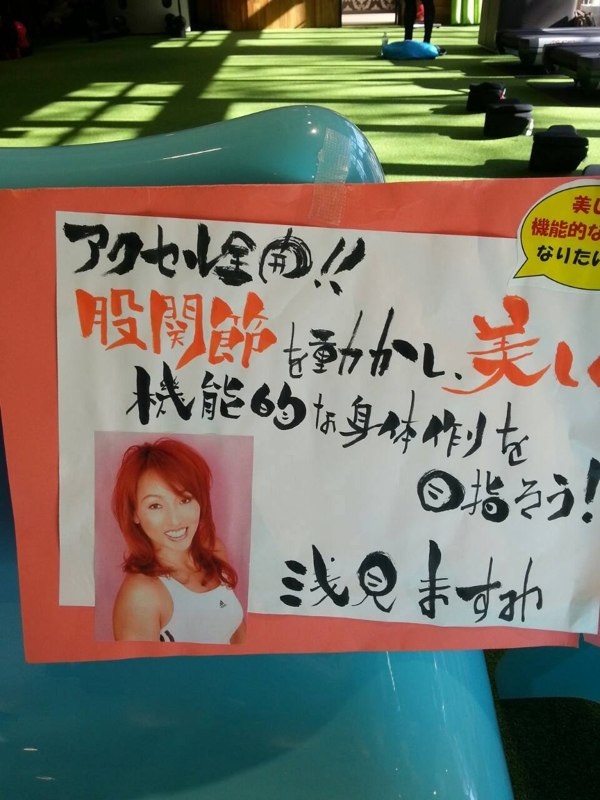 アクセル全開!!
股関節を動かし、美しく
機能的な身体作りを
目指そう!
浅見ますみ
美し
機能的な
なりたい